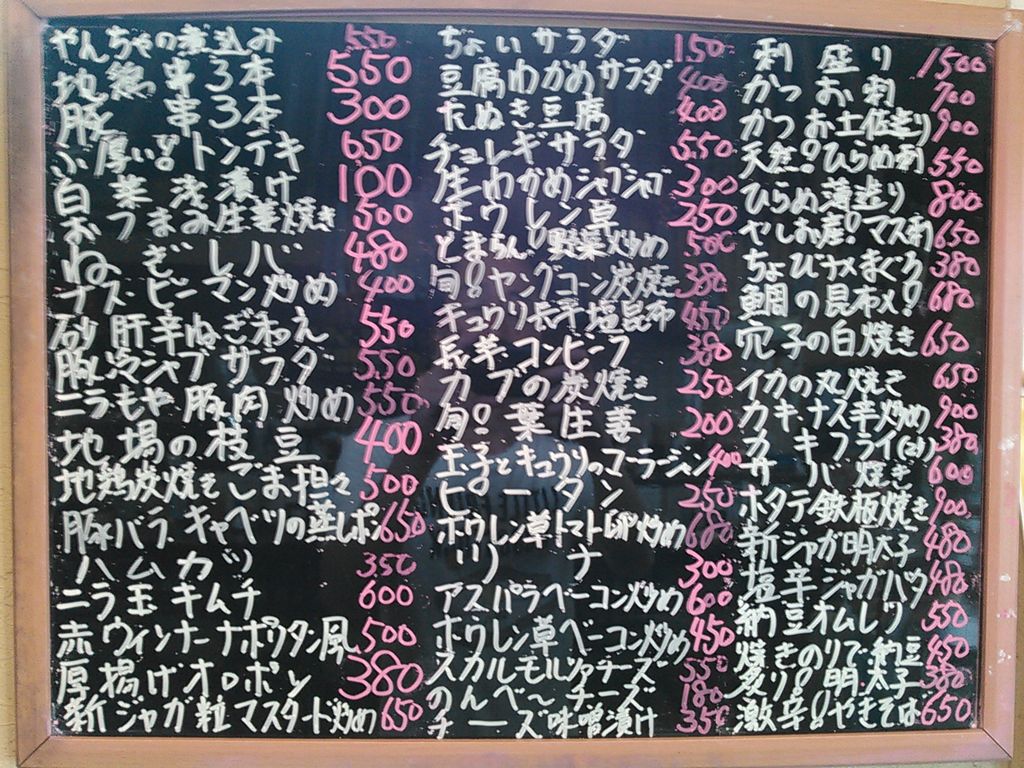 やんちゃの煮込み 550
地鶏串3本 550
豚串3本 300
厚い!! トンテキ 650
白菜浅漬け 100
おつまみ生姜焼き 500
ねぎレバ 480
ナス・ピーマン炒め 400
砂肝辛ねぎ和え 550
豚冷シャブサラダ 550
ニラもや豚肉炒め 550
地場の枝豆 400
地鶏炭焼きごま担々 500
豚バラキャベツの蒸しポン 650
ハムカツ 350
ニラ玉キムチ 600
赤ウィンナーナポリタン風 500
厚揚げオロポン 380
新ジャガ粒マスタード炒め 650
ちょいサラダ 150
豆腐わかめサラダ 400
たぬき豆腐 400
チョレギサラダ 550
生わかめシャブシャブ 300
ホウレン草 250
とまらん!野菜炒め 500
旬!ヤングコーン炭焼き 380
キュウリ長芋塩昆布 450
長芋・コンビーフ 380
カブの炭焼き 250
旬!葉生姜 200
玉子とキュウリのコラージン 400
ピータン 250
ホウレン草トマト卵炒め 680
ツナ 300
アスパラベーコン炒め 600
ホウレン草ベーコン炒め 450
スカルモルツァチーズ 550
のんべ〜チーズ 180
チーズ味噌漬け 350
刺盛り 1500
かつお刺 700
かつお土佐造り 900
天然!ひらめ刺 550
ひらめ薄造り 800
ヤシお産!マス刺 650
ちょびナメまぐろ 380
鯛の昆布〆! 680
穴子の白焼き 650
イカの丸焼き 650
カキナス辛炒め 900
カキフライ(2ヶ) 380
サバ焼き 600
ホタテ鉄板焼き 900
新ジャガ明太子 480
塩辛ジャガバタ 480
納豆オムレツ 550
焼きのりで納豆 450
炙り!明太子 380
激辛!やきそば 650